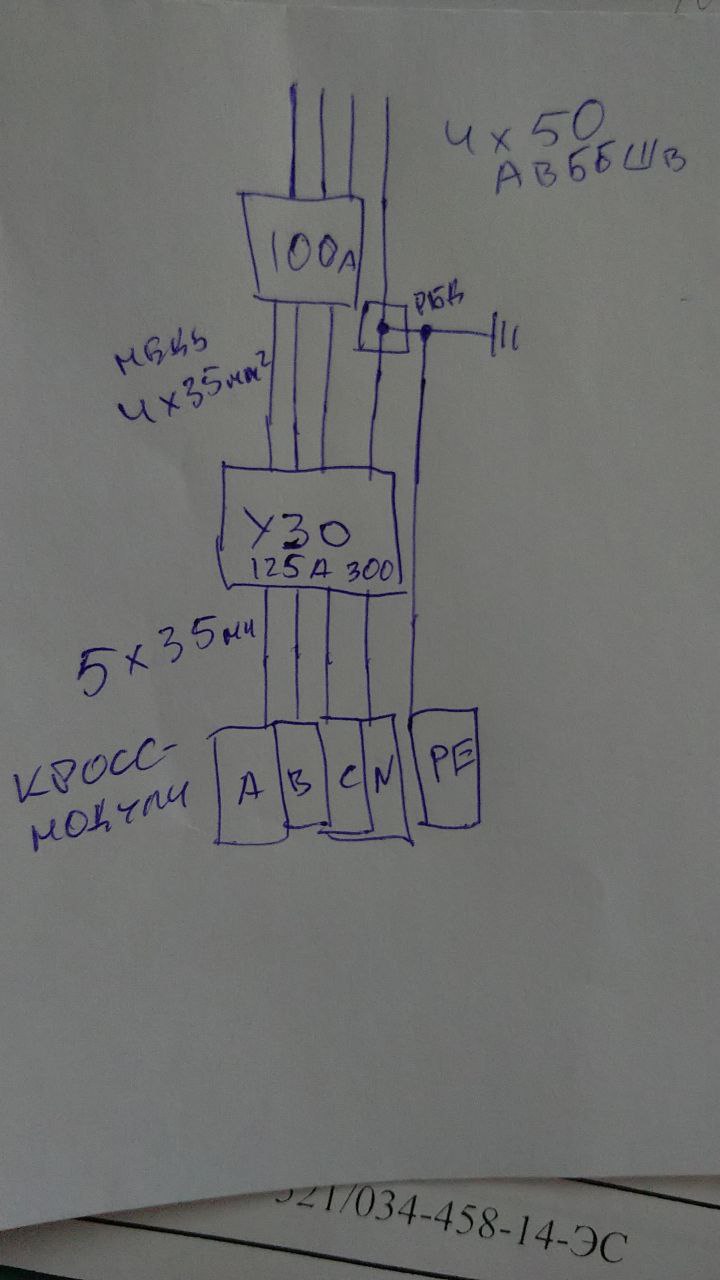 4 х 50
АВББШВ
100А
РБД
4 х 35 мм²
УЗО
125 А 300
5 х 35 мм
КРОСС-
МОДУЛИ
А В С N PE
521/034-458-14-ЭС